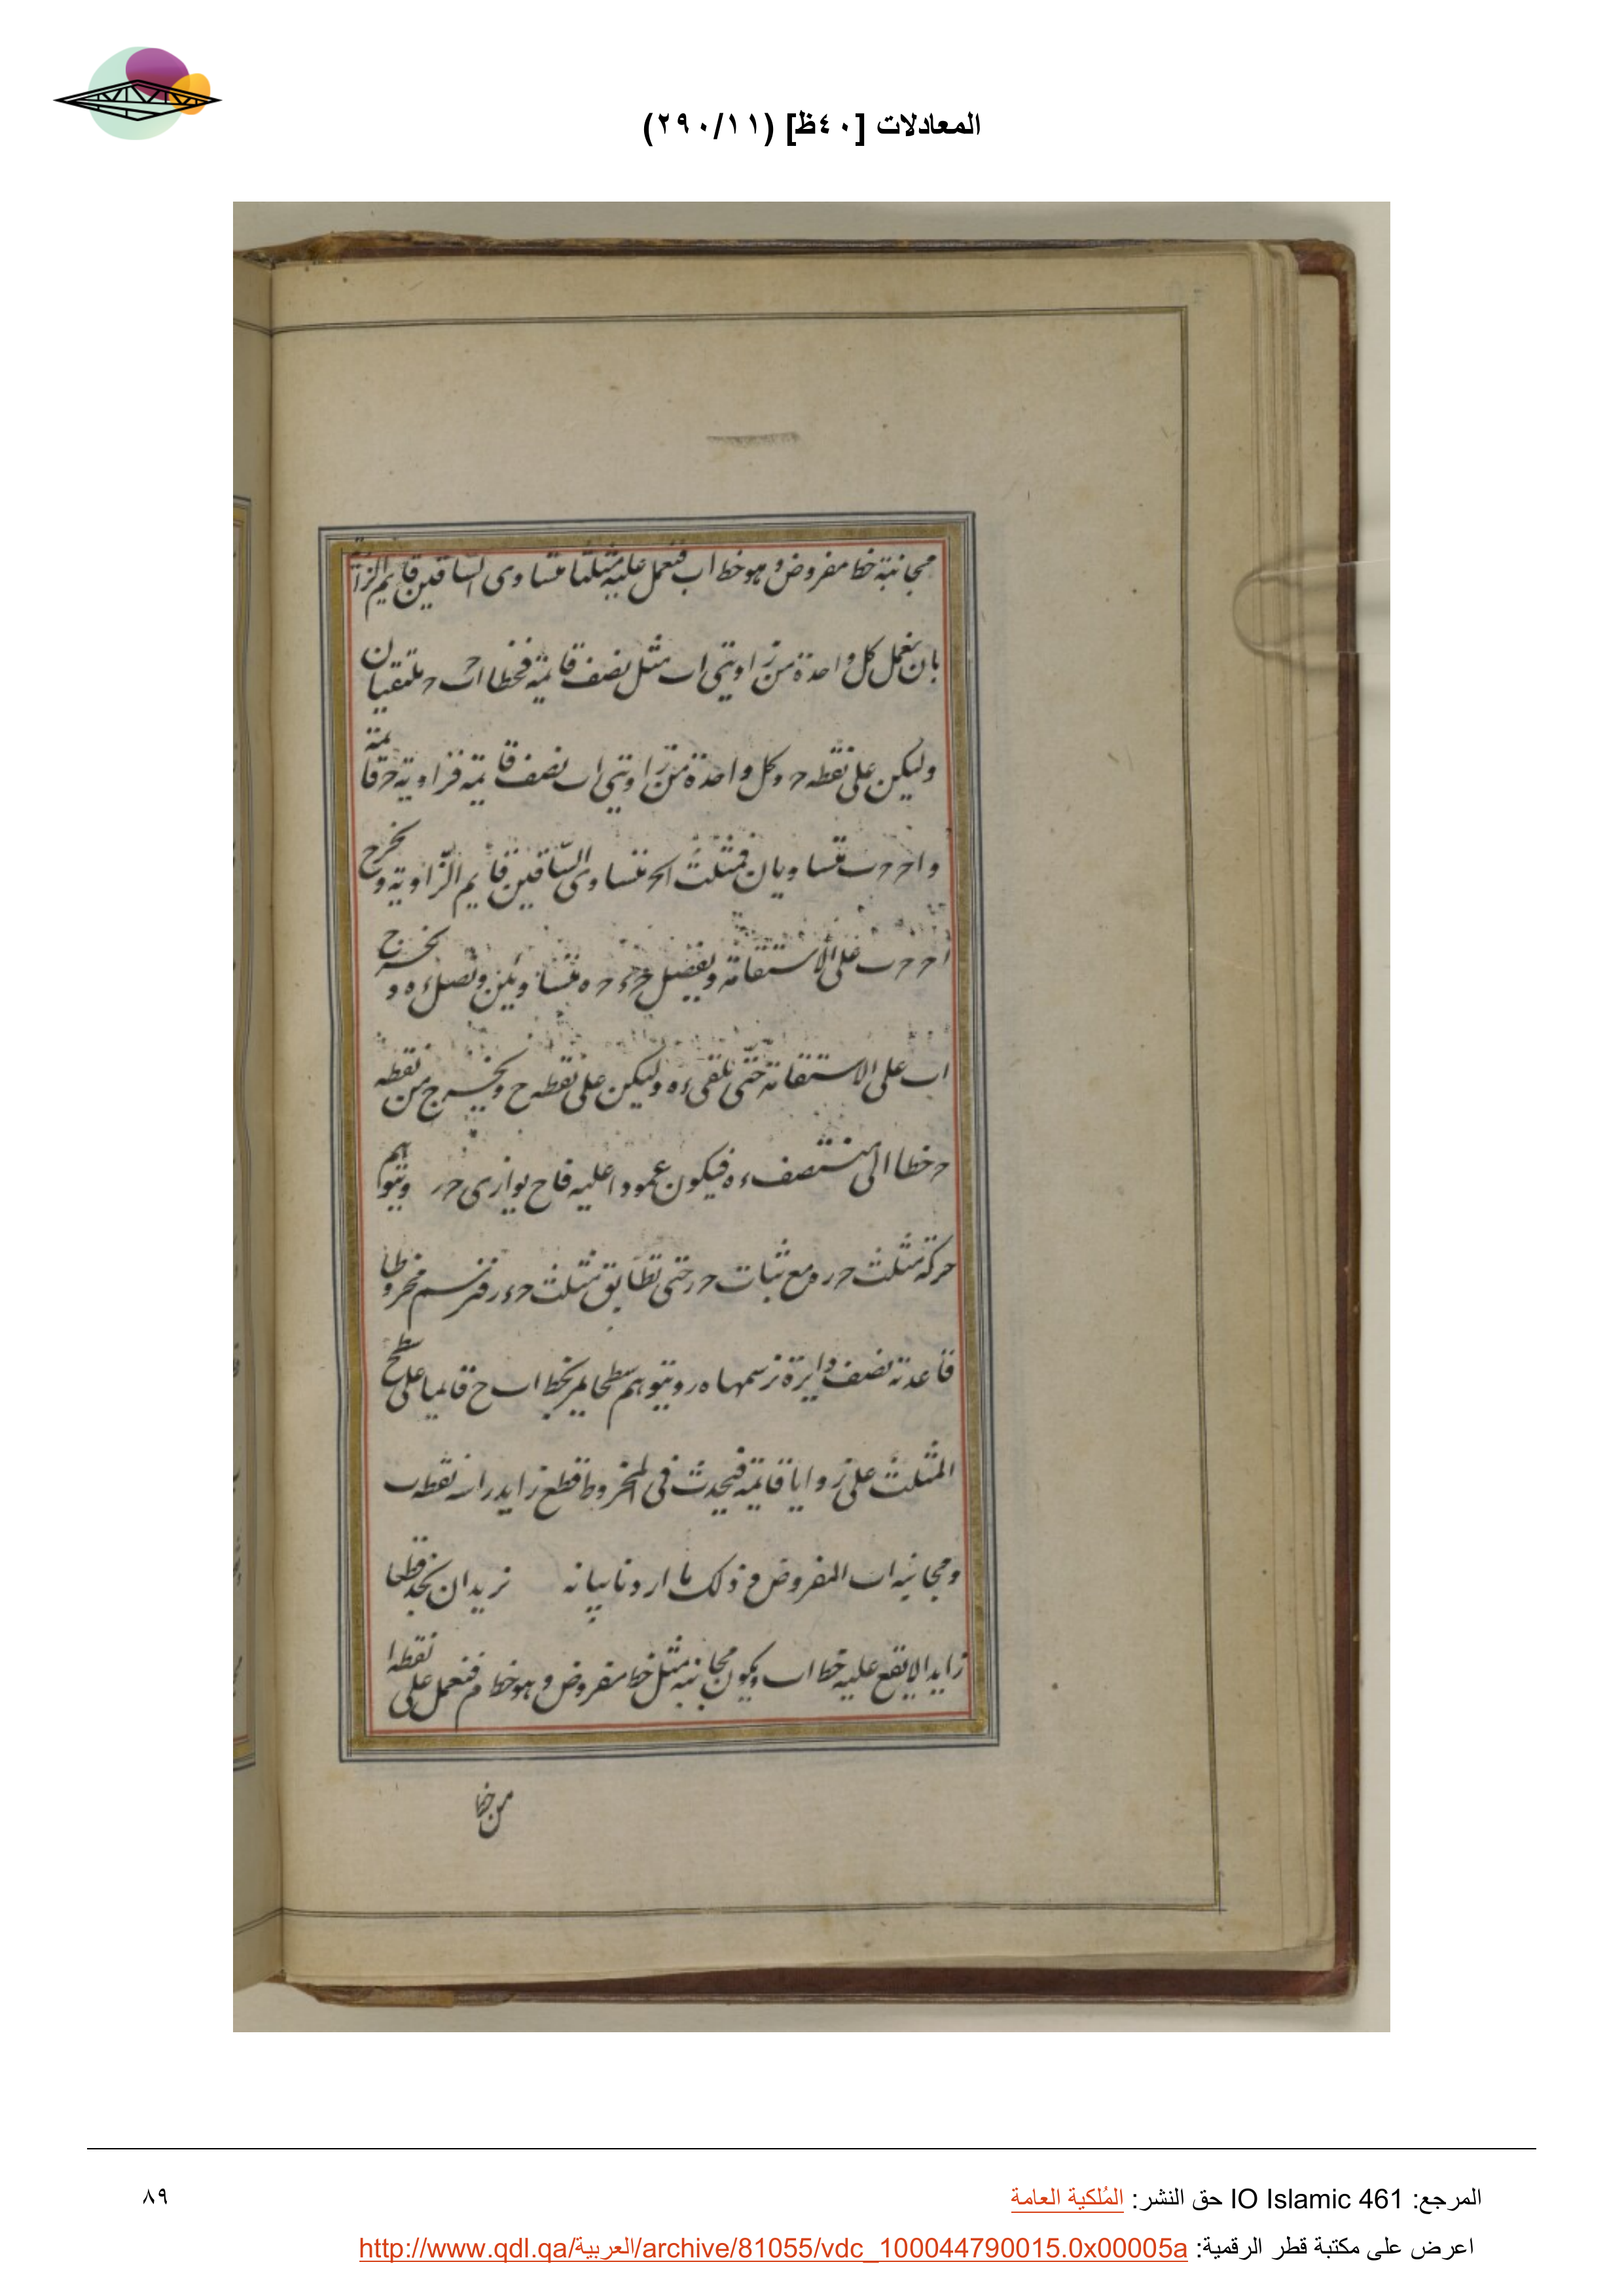 المعادلات [٤٠ظ] (٢٩٠/١١)
مجانبة خط مفروض وهو خط اب فنعمل عليه مثلثا متساوى الساقين قايم الزا
بان نعمل كل واحدة من زاويتى ا ب مثل نصف قايمة فخطا اح ب ح ملتقيان
وليكن على نقطه ح وكل واحدة من زاويتى اب نصف قايمة فزاوية ح قايمة
و اح ح ب متساويان فمثلث اب ح متساوى الساقين قايم الزاوية ونخرج
اح ح ب على الاستقامة ونفصل ح ء ح ه متساويين ونصل ء ه ونخرج
اب على الاستقامة حتى تلقى ء ه وليكن على نقطه ح ونخرج من نقطه
ح خطا الى منتصف ء ه فيكون عمودا عليه فاح يوازى ح ر ونتوهم
حركة مثلث ح ر ه مع ثبات ح ر حتى تطابق مثلث ح ء ر فترتسم مخروطا
قاعدته نصف دايرة ترسمها ه ر ونتوهم سطحا يمر بخط اب ح قايما على سطح
المثلث على زوايا قايمة فيحدث فى المخروط قطع زايد راسه نقطه ب
ومجانبه اب المفروض وذلك ما اردنا بيانه نريد ان نجد قطعا
زايدا لا يقع عليه خط اب ويكون مجانبه مثل خط مفروض وهو خط م فنعمل على نقطه ا
من خط
المرجع: IO Islamic 461 حق النشر: المُلكية العامة
٨٩
اعرض على مكتبة قطر الرقمية: http://www.qdl.qa/العربية/archive/81055/vdc_100044790015.0x00005a